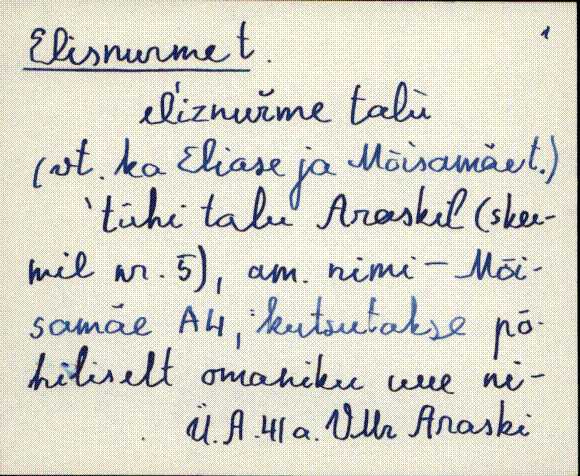 1
Elisnurme t.
eĺiznuřme talù
(vt. ka Eliase ja Mõisamäe t.)
`tühi talu Araskil (skee-
mil nr. 5), am. nimi – Mõi-
samäe A4, kutsutakse põ-
hiliselt omaniku uue ni-
Ü.A. 41 a. VMr Araski